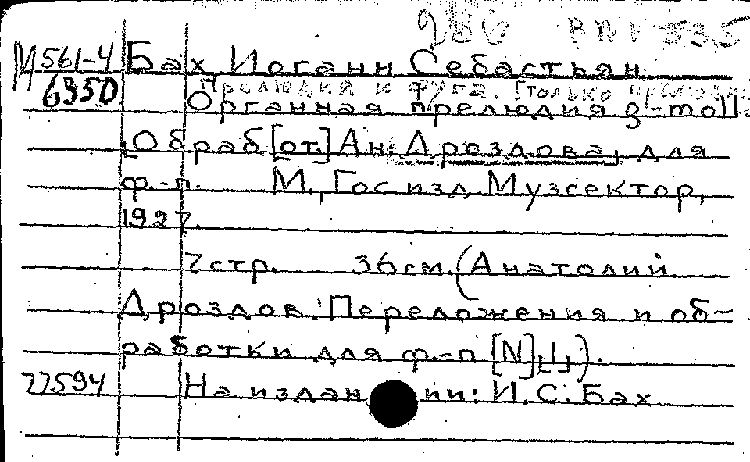 286 BWV 535
М 561-4 Бах Иоганн Себастьян.
6350 Прелюдия и фуга. [только прелюдия]
Органная прелюдия g-moll.
[Обраб[от.] Ан. Дроздова, для
ф-п. М., Госизд. Музсектор,
1927.
7 стр. 36 см. (Анатолий
Дроздов. Переложения и об-
работки для ф-п [N] 1).
77594 На издании: И. С. Бах